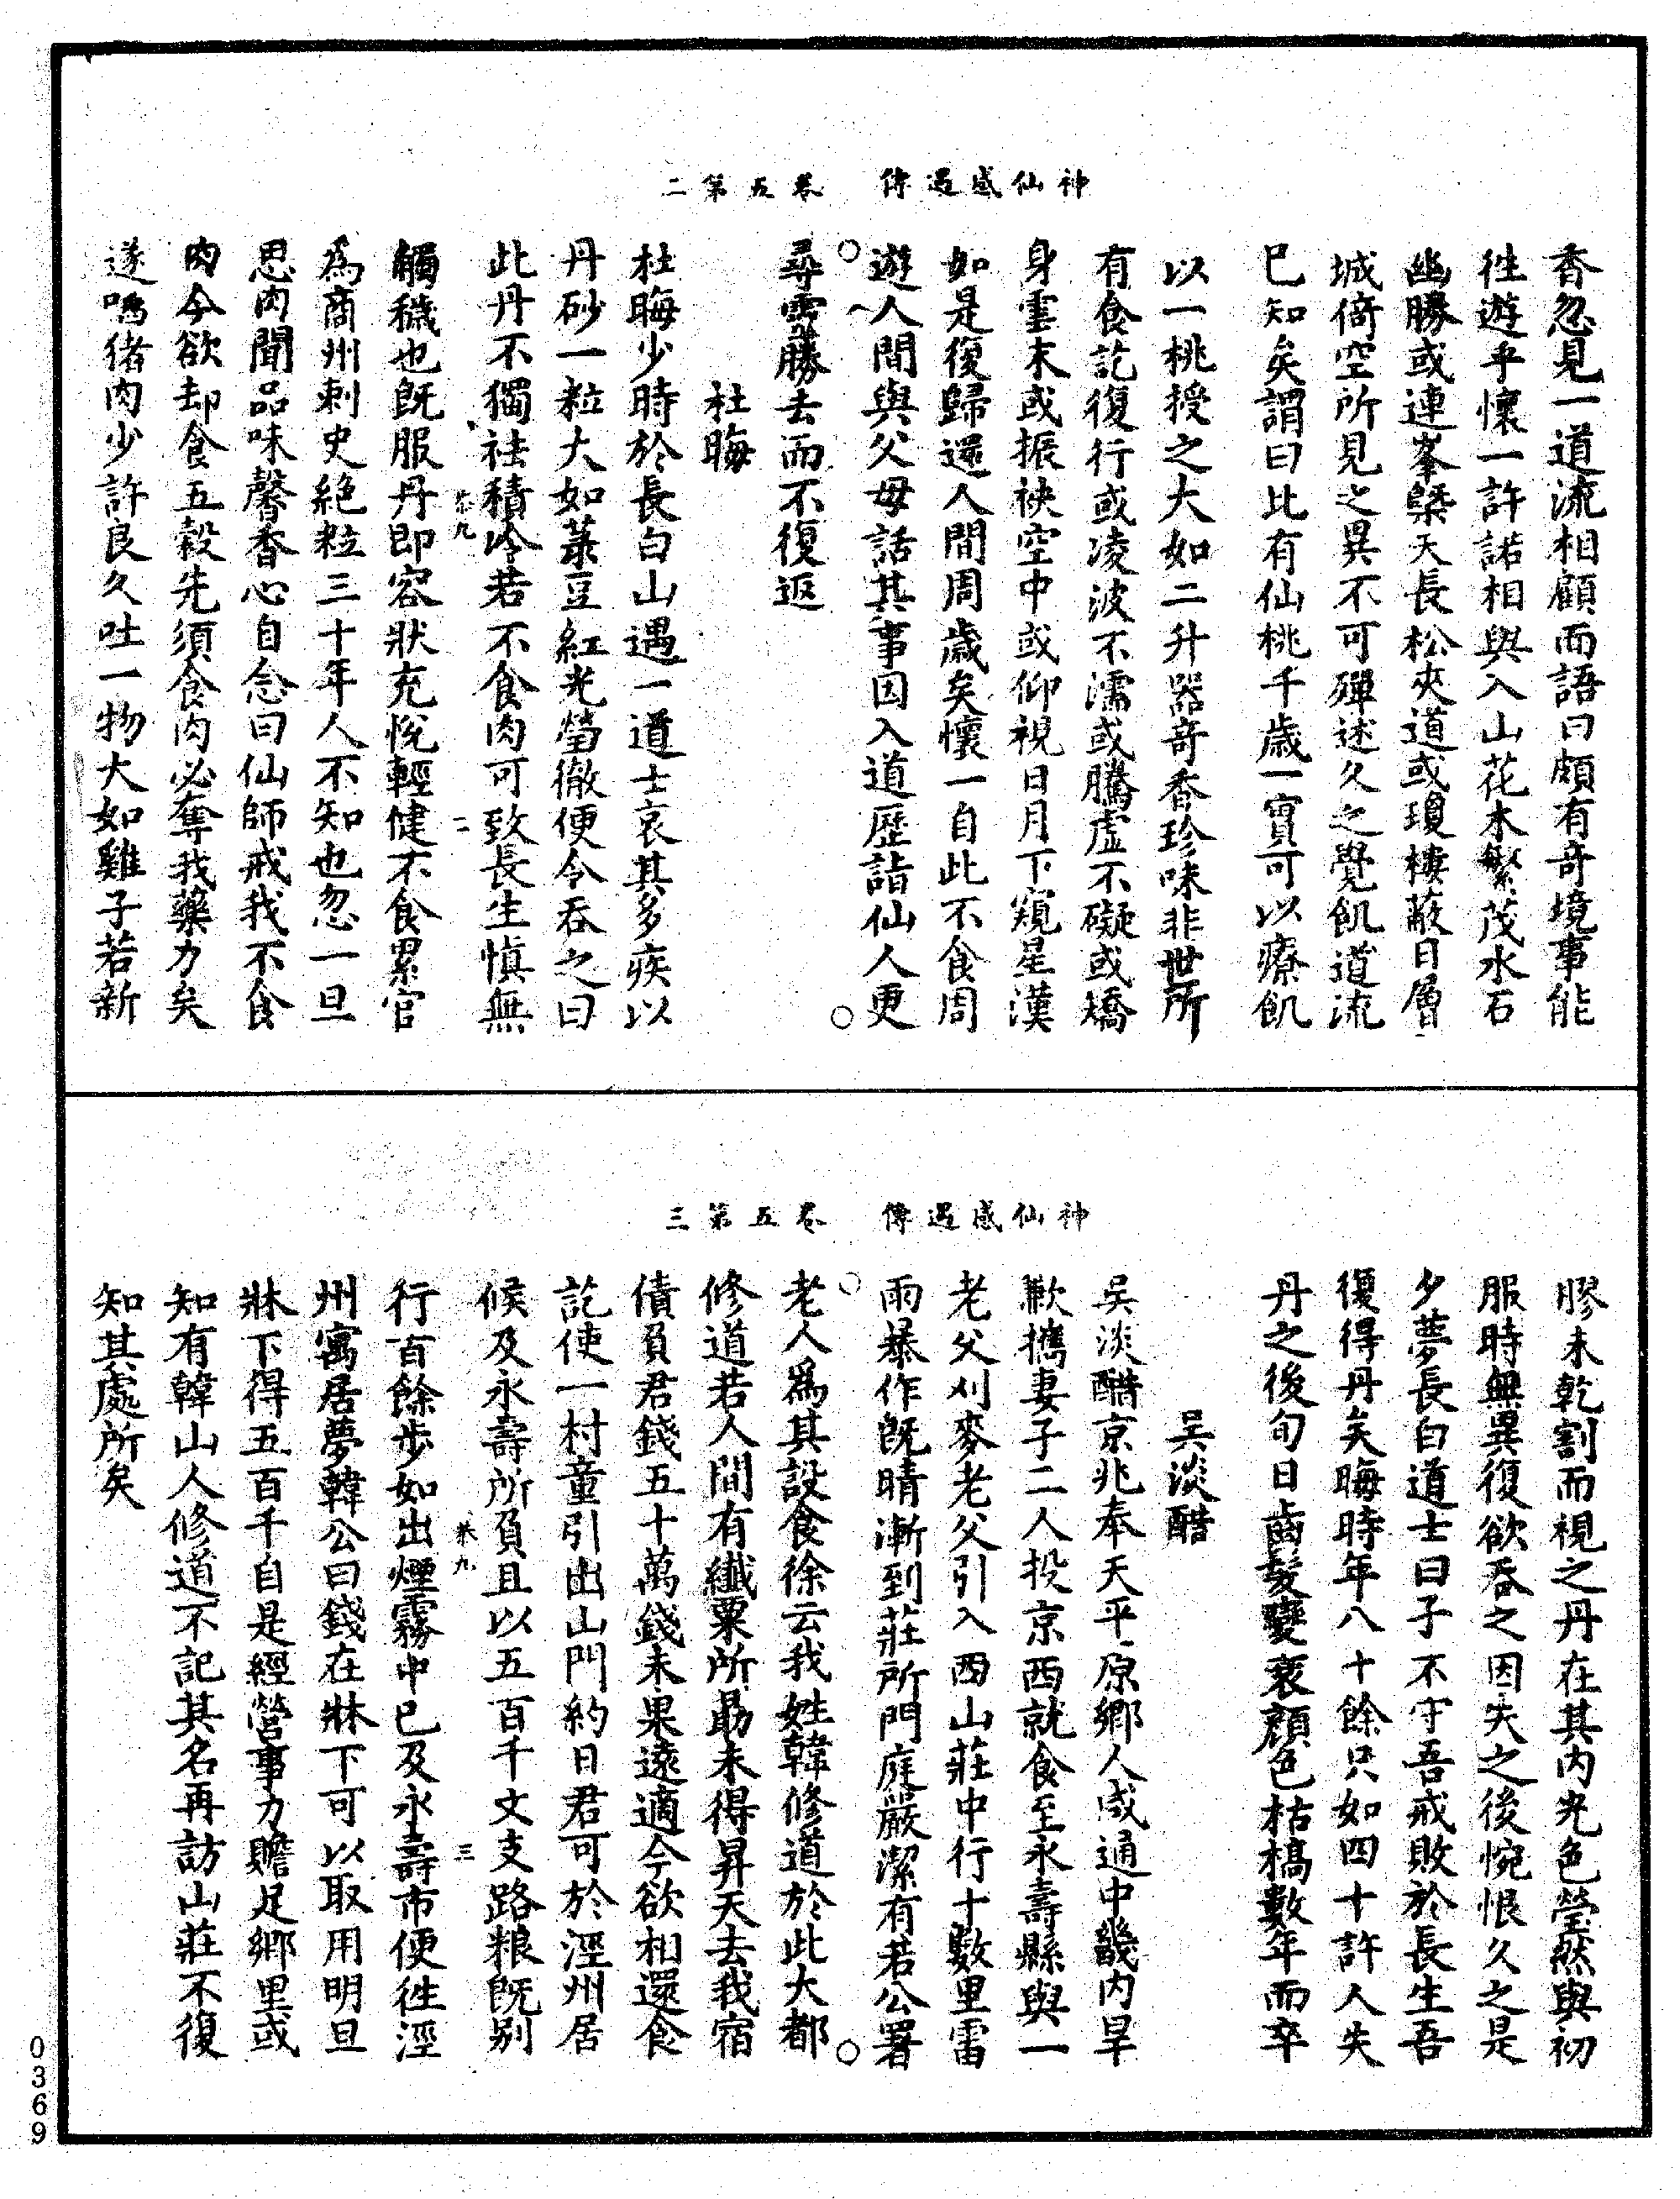 神仙感遇傳　卷五第二
香忽見一道流相顧而語曰頗有奇境事能
徃遊乎懷一許諾相與入山花木繁茂水石
幽勝或連峯槩天長松夾道或瓊樓蔽日層
城倚空所見之異不可殫述久之覺飢道流
已知矣謂曰此有仙桃千歲一實可以療飢
以一桃授之大如二升器奇香珍味非世所
有食訖復行或凌波不濡或騰虛不礙或矯
身雲末或振袂空中或仰視日月下窺星漢
如是復歸還人間周歲矣懷一自此不食周
遊人間與父母話其事因入道歷詣仙人更
尋靈勝去而不復返
杜晦
杜晦少時於長白山遇一道士哀其多疾以
丹砂一粒大如菉豆紅光瑩徹便令吞之曰
此丹不獨祛積冷若不食肉可致長生慎無
觸穢也旣服丹即容狀充悅輕健不食累官
爲商州刺史絶粒三十年人不知也忽一旦
思肉聞品味馨香心自念曰仙師戒我不食
肉今欲却食五穀先須食肉必奪我藥力矣
遂喎猪肉少許良久吐一物大如雞子若新
神仙感遇傳　卷五第三
膠未乾割而視之丹在其内光色瑩然與初
服時無異復欲吞之因失之後惋恨久之是
夕夢長白道士曰子不守吾戒敗於長生吾
復得丹矣晦時年八十餘只如四十許人失
丹之後旬日齒髮變衰顏色枯槁數年而卒
吳淡醋
吳淡醋京兆奉天平原鄉人咸通中畿内旱
歉擕妻子二人投京西就食至永壽縣與一
老父刈麥老父引入西山莊中行十數里雷
雨暴作旣晴漸到莊所門庭嚴潔有若公署
老人爲其設食徐云我姓韓修道於此大都
修道若人間有纖粟所勗未得昇天去我宿
債負君錢五十萬錢未果遠適今欲相還食
訖使一村童引出山門約日君可於涇州居
候及永壽所負且以五百千文支路粮旣别
行百餘步如出煙霧中已及永壽市便徃涇
州寓居夢韓公曰錢在牀下可以取用明旦
牀下得五百千自是經營事力贍足鄉里或
知有韓山人修道不記其名再訪山莊不復
知其處所矣
0369